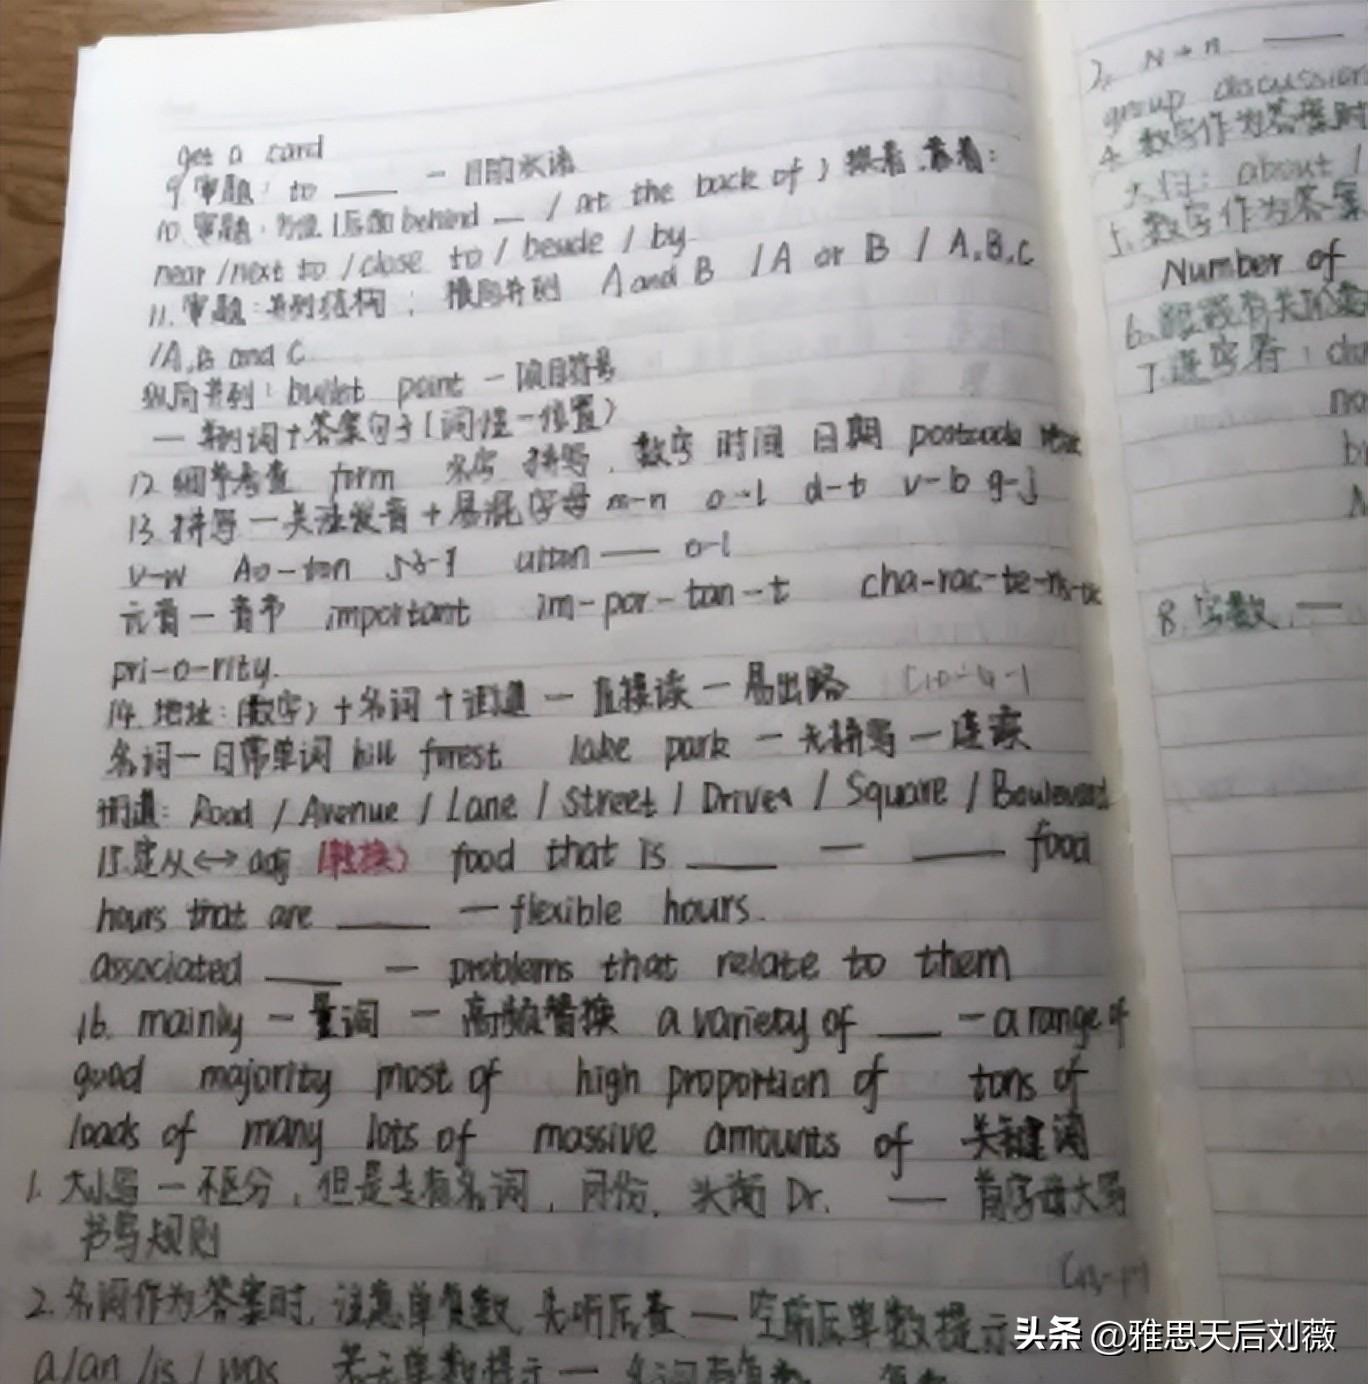 get a card
9. 审题: to ____ - 目的状语
10. 审题: 方位 (后面 behind __ / at the back of) 挨着.靠着:
near / next to / close to / beside / by
11. 审题: 并列结构: 横向并列 A and B / A or B / A.B.C
/ A,B and C
纵向并列: bullet point - 项目符号
一 并列词+答案句子(词性-位置)
12 细节考查 form 名字 拼写, 数字 时间 日期 postcode
13. 拼写 - 关注发音 + 易混字母 m-n o-l d-t v-b g-j
v-w
元音 - 音节 important im-por-tan-t cha-rac-te-ris-tic
pri-o-rity.
14. 地址: (数字) + 名词 + 街道 - 直接读 - 易出路
名词 - 日常单词 hill forest lake park - 无拼写 - 连读
街道: Road / Avenue / Lane / Street / Drive / Square / Boulevard
15. 定从 ↔ adj (转换) food that is ____ — ____ food
hours that are ____ — flexible hours.
associated ____ — problems that relate to them
16. mainly - 量词 - 高频替换 a variety of ___ - a range of
good majority most of high proportion of tons of
loads of many lots of massive amounts of 关键词
1. 大小写 - 不区分, 但是专有名词, 月份, 头衔 Dr. — 首字母大写
书写规则
2. 名词作为答案时, 注意单复数, 先听后查 — 空前后单数提示
a/an /is / was 若无单数提示 —
N + n ____
group discussion
4. 数字作为答案时
大约: about /
5. 数字作为答案
Number of
6.
7. 连字符:
8. 字数. —
头条 @雅思天后刘薇